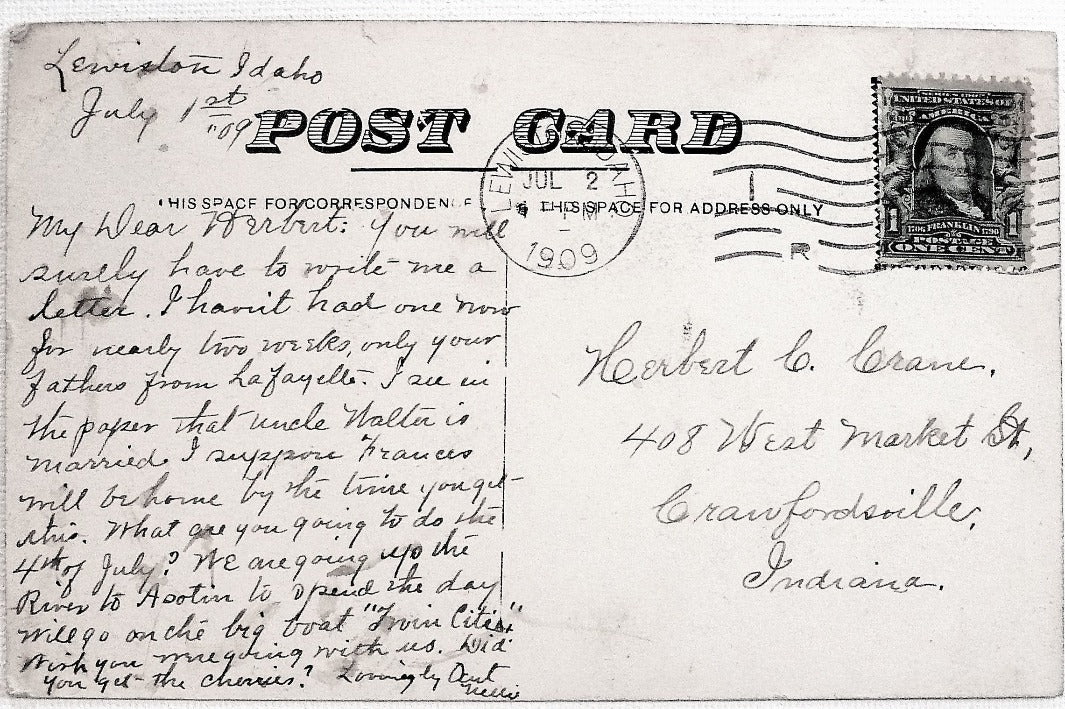 Lewiston Idaho
July 1st
'09
POST CARD
THIS SPACE FOR CORRESPONDENCE
THIS SPACE FOR ADDRESS ONLY
LEWISTON, IDAHO
JUL 2
1909
R
UNITED STATES OF
AMERICA
1 1
1706 FRANKLIN 1790
POSTAGE
ONE CENT
My Dear Herbert: You will
surely have to write me a
letter. I havn't had one now
for nearly two weeks, only your
fathers from Lafayette. I see in
the paper that uncle Walter is
married. I suppose Frances
will be home by the time you get
this. What are you going to do the
4th of July? We are going up the
River to Asotin to spend the day
will go on the big boat "Twin Cities"
Wish you were going with us. Did
you get the cherries? Lovingly Aunt
Nellie
Herbert C. Crane.
408 West Market St,
Crawfordsville,
Indiana.